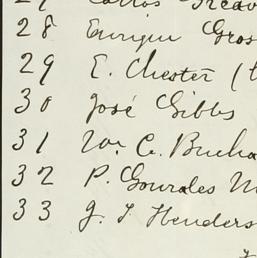 28 Enrique Gros
29 E. Chester (
30 José Gibbs
31 Wm G. Bucha
32 P. Gourales M
33 J. T. Henders